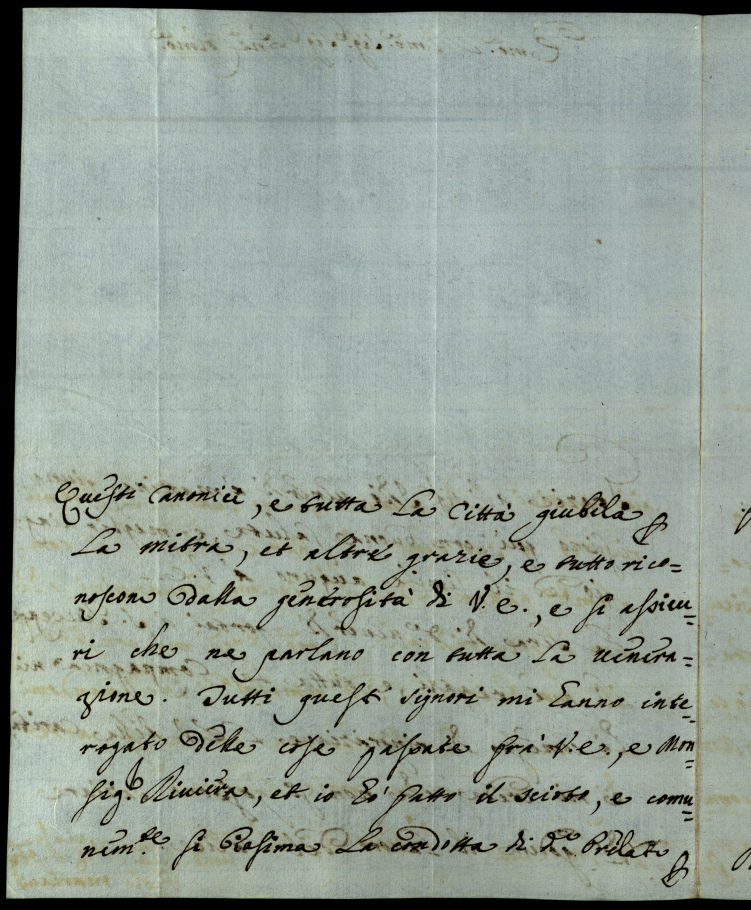 Questi Canonici, e tutta la Città giubila p
la mitra, et altre grazie, e tutto rico=
noscono dalla generosità di V. E., e si assicu=
ri che ne parlano con tutta la venera=
zione. Tutti questi signori mi hanno inte=
rogato delle cose passate frà V. E., e Mon=
sig.r Riviera, et io hò fatto il sciotto, e comu=
nem.te si biasima la condotta di d.o Prelato
p